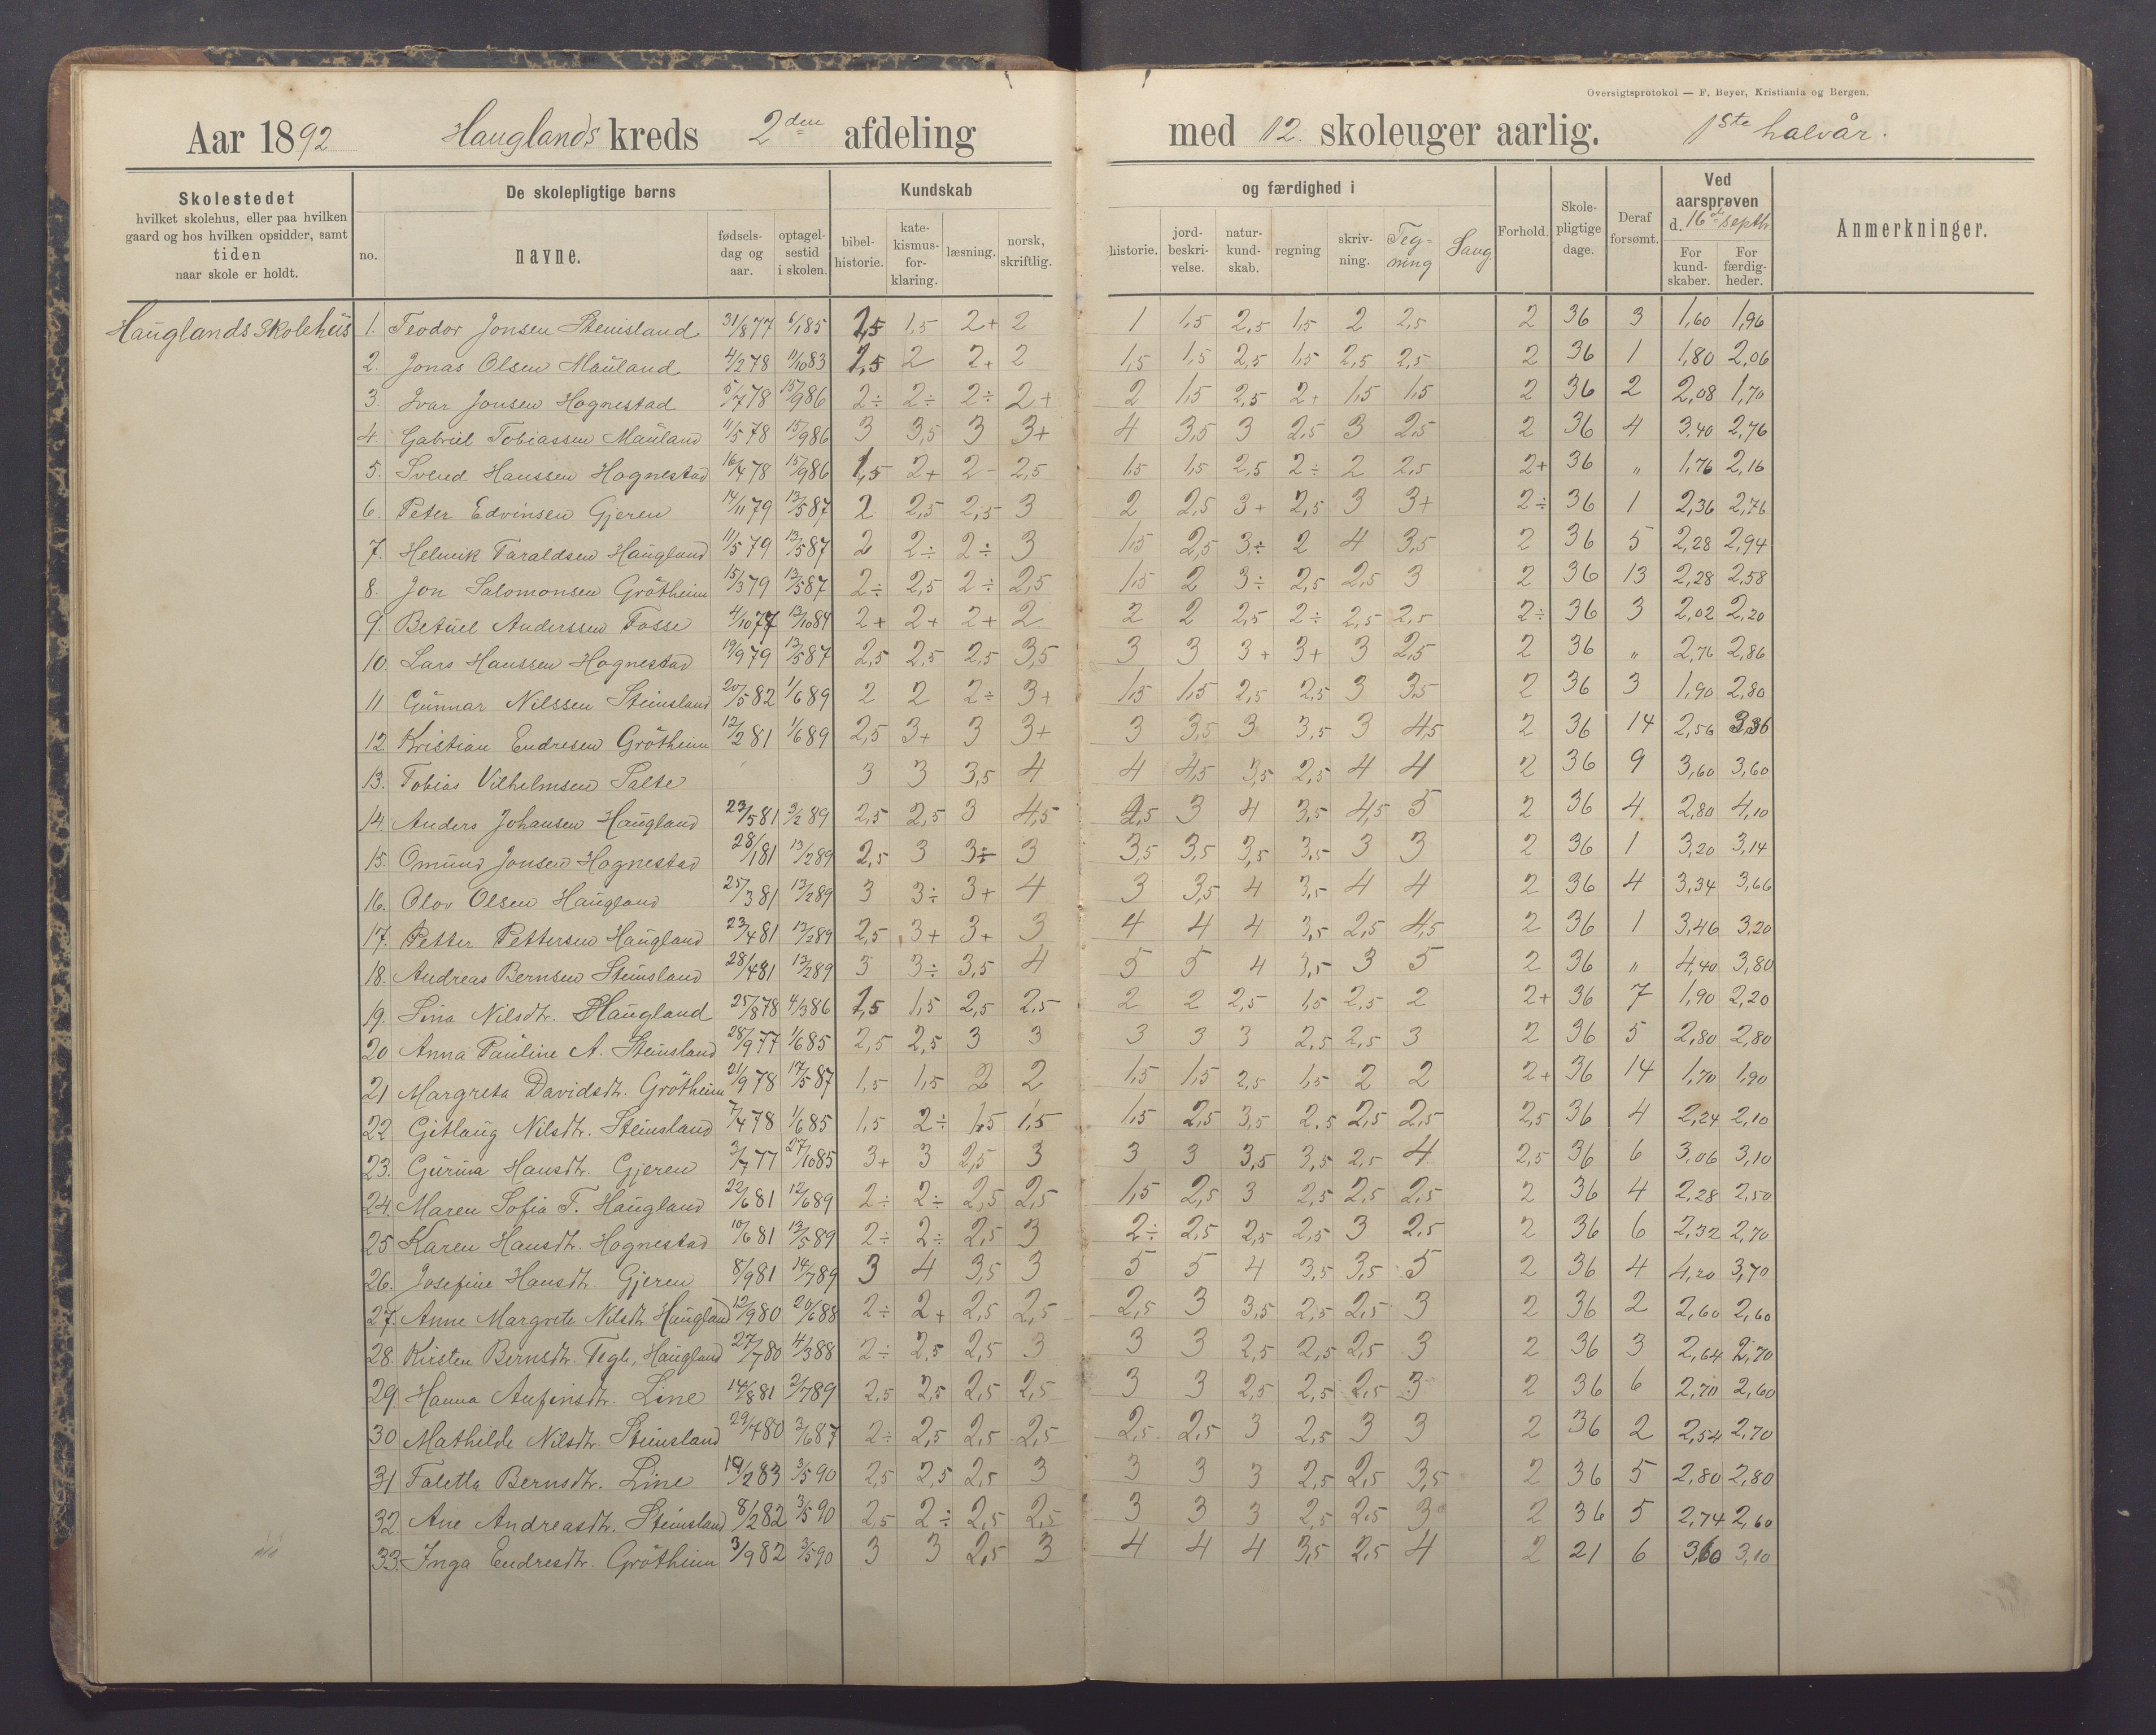 Oversigtsprotokol — F. Beyer, Kristiania og Bergen.
Aar 1892 Hauglands kreds 2den afdeling med 12. skoleuger aarlig. 1ste halvår.
Skolestedet
hvilket skolehus, eller paa hvilken
gaard og hos hvilken opsidder, samt
tiden
naar skole er holdt.
De skolepligtige børns
no.
navne.
fødsels-
dag og
aar.
optagel-
sestid
i skolen.
Kundskab
bibel-
historie.
kate-
kismus-
for-
klaring.
læsning.
norsk,
skriftlig.
og færdighed i
historie.
jord-
beskri-
velse.
natur-
kund-
skab.
regning
skriv-
ning.
Teg-
ning
Sang.
Forhold.
Skole-
pligtige
dage.
Deraf
forsømt.
Ved
aarsprøven
d. 16de septbr
For
kund-
skaber.
For
færdig-
heder.
Anmerkninger.
Hauglands Skolehus
1. Teodor Jonsen Steinsland 31/8 77 6/1 85 1,5 1,5 2+ 2 1 1,5 2,5 1,5 2 2,5 2 36 3 1,60 1,96
2. Jonas Olsen Mauland 4/2 78 11/10 83 1,5 2 2+ 2 1,5 1,5 2,5 1,5 2,5 2,5 2 36 1 1,80 2,06
3. Ivar Jonsen Hognestad 5/7 78 15/9 86 2÷ 2÷ 2÷ 2+ 2 1,5 2,5 2+ 1,5 1,5 2 36 2 2,08 1,70
4. Gabriel Tobiassen Mauland 11/5 78 15/9 86 3 3,5 3 3+ 4 3,5 3 2,5 3 2,5 2 36 4 3,40 2,76
5. Svend Hanssen Hognestad 16/4 78 15/9 86 1,5 2+ 2- 2,5 1,5 1,5 2,5 2÷ 2 2,5 2+ 36 " 1,76 2,16
6. Peter Edvinsen Gjeren 14/11 79 13/5 87 2 2,5 2,5 3 2 2,5 3+ 2,5 3 3+ 2÷ 36 1 2,36 2,76
7. Helmik Taraldsen Haugland 11/5 79 13/5 87 2 2÷ 2÷ 3 1,5 2,5 3÷ 2 4 3,5 2 36 5 2,28 2,94
8. Jon Salomonsen Grötheim 15/3 79 13/5 87 2÷ 2,5 2÷ 2,5 1,5 2 3÷ 2,5 2,5 3 2 36 13 2,28 2,58
9. Betuel Anderssen Fosse 4/10 77 13/10 84 2+ 2+ 2+ 2 2 2 2,5 2÷ 2,5 2,5 2÷ 36 3 2,02 2,20
10. Lars Hanssen Hognestad 19/9 79 13/5 87 2,5 2,5 2,5 3,5 3 3 3+ 3+ 3 2,5 2 36 " 2,76 2,86
11 Gunnar Nilssen Steinsland 20/5 82 1/6 89 2 2 2÷ 3+ 1,5 1,5 2,5 2,5 3 3,5 2 36 3 1,90 2,80
12 Kristian Endresen Grötheim 12/2 81 1/6 89 2,5 3+ 3 3+ 3 3,5 3 3,5 3 4,5 2 36 14 2,56 3,36
13. Tobias Vilhelmsen Salte 3 3 3,5 4 4 4,5 3,5 2,5 4 4 2 36 9 3,60 3,60
14. Anders Johansen Haugland 23/5 81 3/2 89 2,5 2,5 3 4,5 2,5 3 4 3,5 4,5 5 2 36 4 2,80 4,10
15. Omund Jonsen Hognestad 28/1 81 13/2 89 2,5 3 3÷ 3 3,5 3,5 3,5 3,5 3 3 2 36 1 3,20 3,14
16. Olov Olsen Haugland 25/3 81 13/2 89 3 3÷ 3+ 4 3 3,5 4 3,5 4 4 2 36 4 3,34 3,66
17. Petter Pettersen Haugland 23/4 81 13/2 89 2,5 3+ 3+ 3 4 4 4 3,5 2,5 4,5 2 36 1 3,46 3,20
18. Andreas Bernsen Steinsland 28/4 81 13/2 89 3 3÷ 3,5 4 5 5 4 3,5 3 5 2 36 " 4,40 3,80
19. Sina Nilsdtr. Haugland 25/8 78 4/3 86 1,5 1,5 2,5 2,5 2 2 2,5 1,5 2,5 2 2+ 36 7 1,90 2,20
20 Anna Pauline A. Steinsland 28/9 77 1/6 85 2,5 2,5 3 3 3 3 3 2,5 2,5 3 2 36 5 2,80 2,80
21 Margreta Davidsdtr. Grötheim 21/9 78 17/5 87 1,5 1,5 2 2 1,5 1,5 2,5 1,5 2 2 2+ 36 14 1,70 1,90
22 Gitlaug Nilsdtr. Steinsland 7/4 78 1/6 85 1,5 2÷ 1,5 1,5 1,5 2,5 3,5 2,5 2,5 2,5 2,5 36 4 2,24 2,10
23. Gurina Hansdtr. Gjeren 3/7 77 27/10 85 3+ 3 2,5 3 3 3 3,5 3,5 2,5 4 2,5 36 6 3,06 3,10
24. Maren Sofia T. Haugland 22/6 81 12/6 89 2÷ 2÷ 2,5 2,5 1,5 2,5 3 2,5 2,5 2,5 2 36 4 2,28 2,50
25 Karen Hansdtr. Hognestad 10/6 81 13/5 89 2÷ 2÷ 2,5 3 2÷ 2,5 2,5 2,5 3 2,5 2 36 6 2,32 2,70
26. Josefine Hansdtr. Gjeren 8/9 81 14/7 89 3 4 3,5 3 5 5 4 3,5 3,5 5 2 36 4 4,20 3,70
27. Anne Margrete Nilsdtr Haugland 12/9 80 20/6 88 2÷ 2+ 2,5 2,5 2,5 3 3,5 2,5 2,5 3 2 36 2 2,60 2,60
28. Kirsten Bernsdtr. Tegle, Haugland 27/7 80 4/3 88 2÷ 2,5 2,5 3 3 3 2,5 2,5 2,5 3 2 36 3 2,64 2,70
29. Hanna Aufinsdtr. Line 14/8 81 2/7 89 2,5 2,5 2,5 2,5 3 3 2,5 2,5 2,5 3 2 36 6 2,70 2,60
30 Mathilde Nilsdtr. Steinsland 29/7 80 3/6 87 2÷ 2,5 2,5 2,5 2,5 2,5 3 2,5 3 3 2 36 2 2,54 2,70
31 Taletta Bernsdtr. Line 19/2 83 3/5 90 2,5 2,5 2,5 3 3 3 3 2,5 2,5 3,5 2 36 5 2,80 2,80
32. Ane Andreasdtr. Steinsland 8/2 82 3/5 90 2,5 2÷ 2,5 2,5 3 3 3 2,5 2,5 3 2 36 5 2,74 2,60
33. Inga Endresdtr. Grötheim 3/9 82 3/5 90 3 3 2,5 3 4 4 4 3,5 2,5 4 2 21 6 3,60 3,10